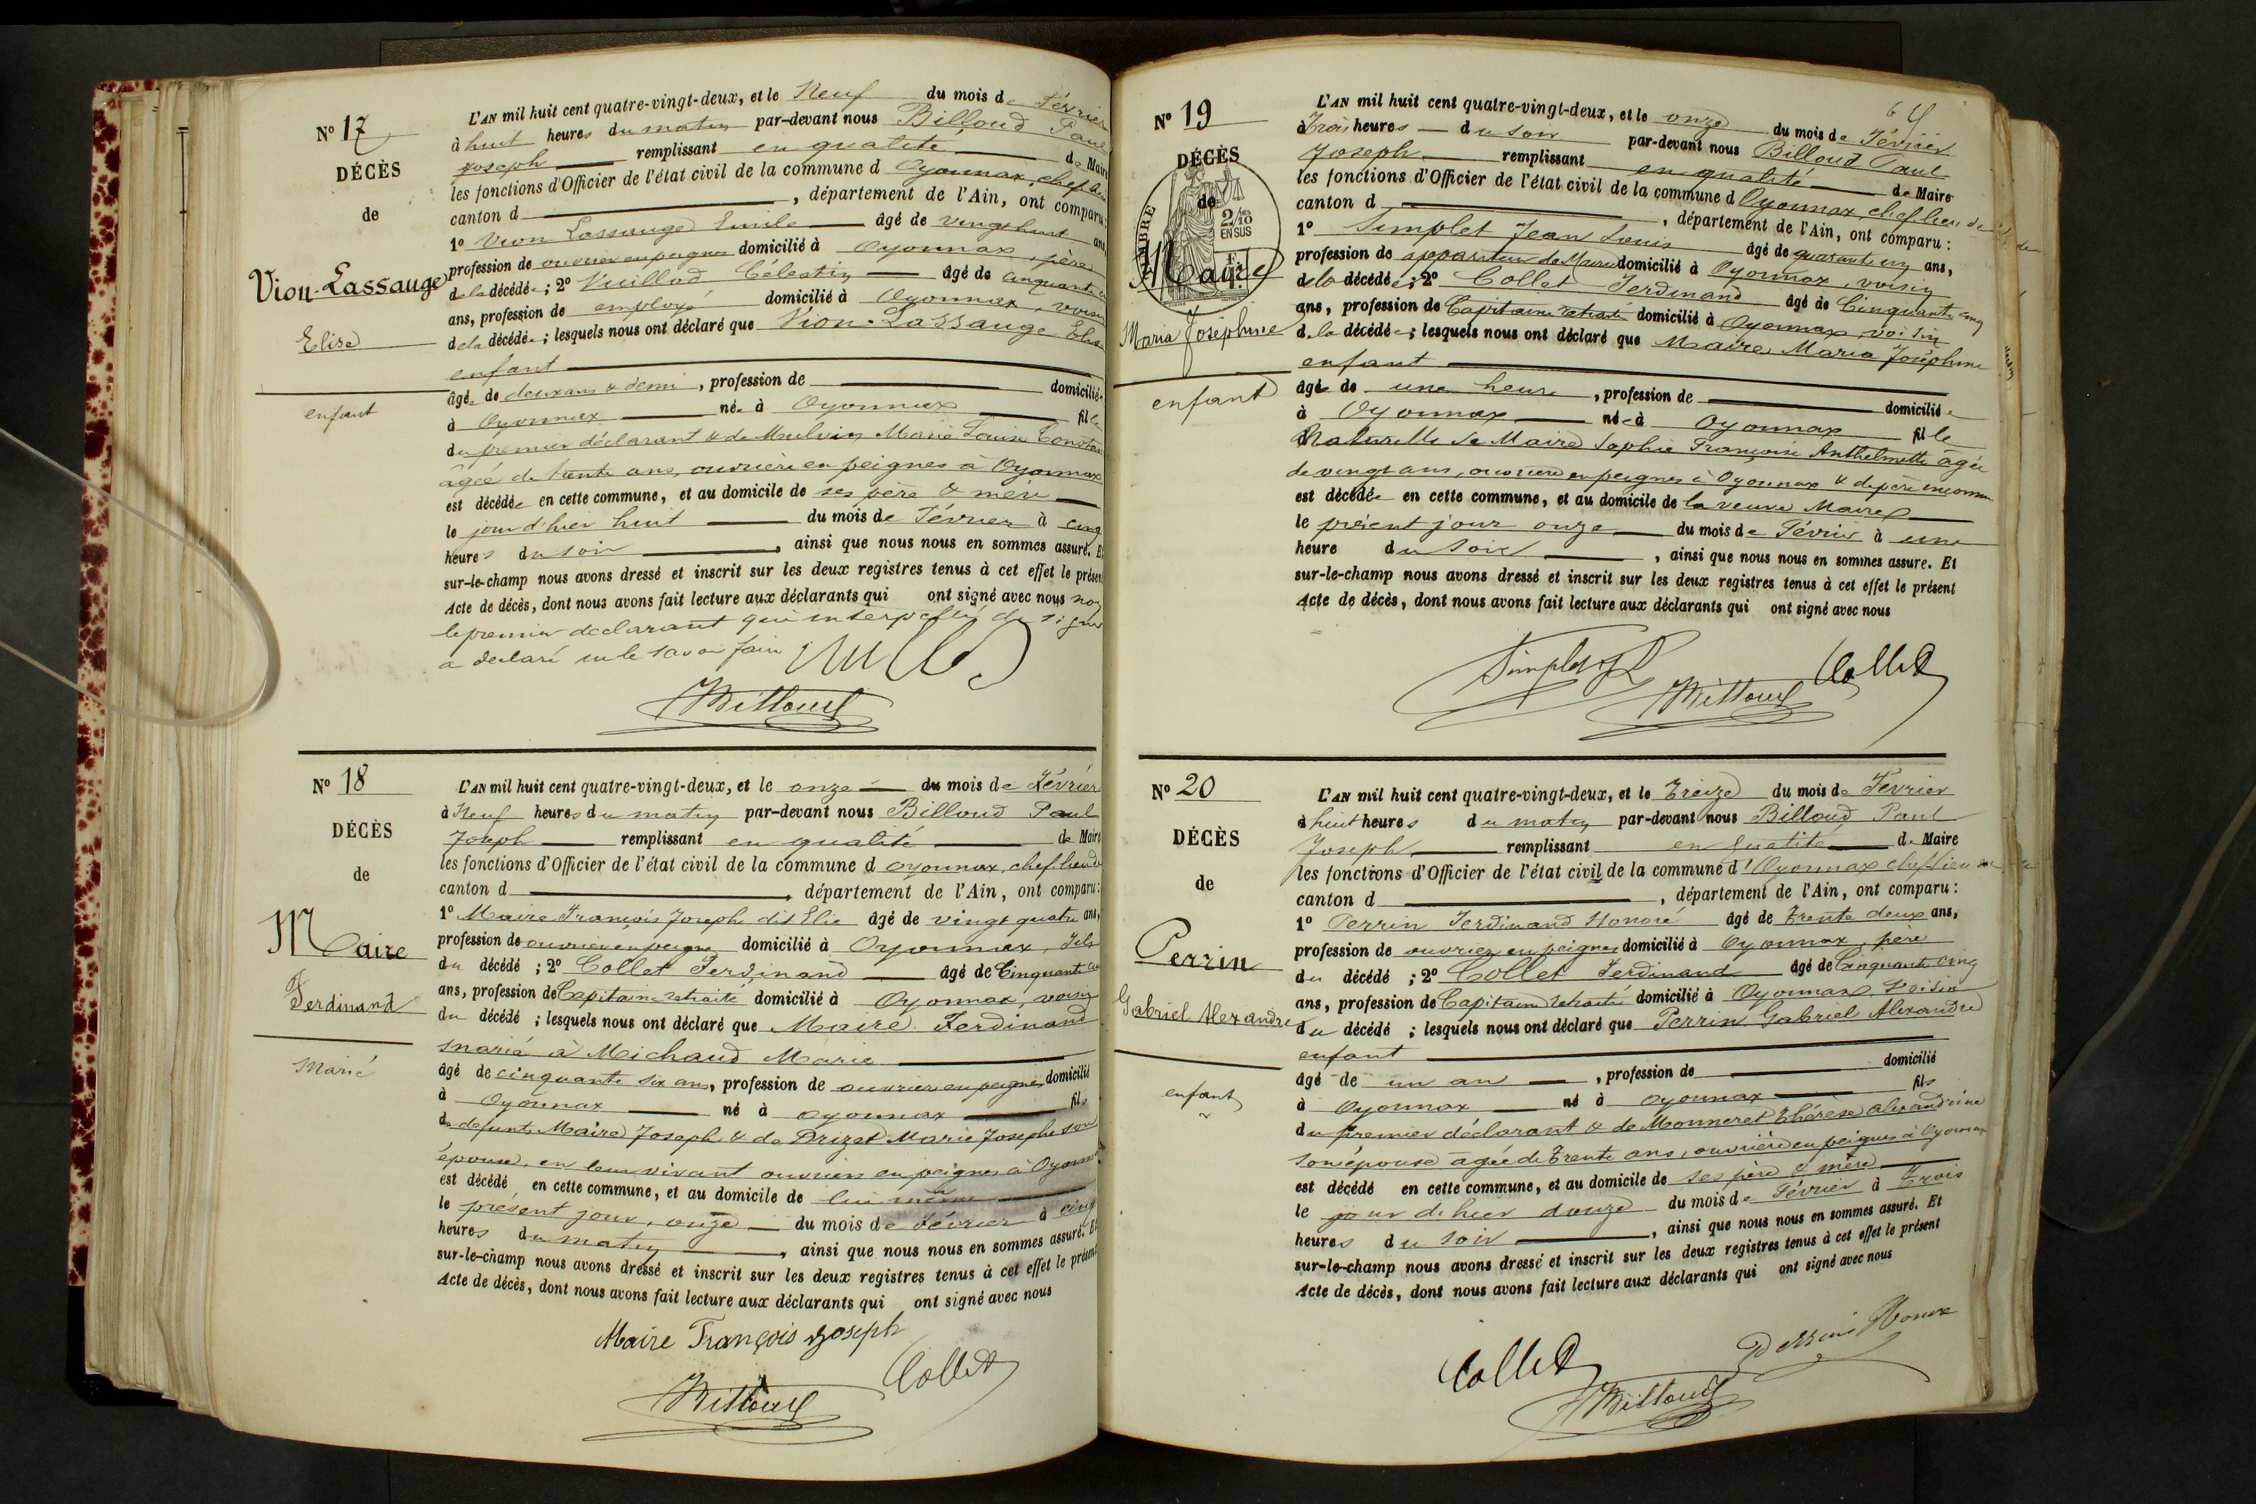 N° 17
DÉCÈS
de
Vion-Lassauge
Elise
enfant
L'AN mil huit cent quatre-vingt-deux, et le Neuf du mois de Février
à huit heures du matin par-devant nous Billoud Paul
Joseph remplissant en qualité de Maire
les fonctions d'Officier de l'état civil de la commune d Oyonnax, chef lieu
canton d , département de l'Ain, ont comparu:
1° Vion Lassauge Emile âgé de vingt huit ans
profession de ouvrier en peignes domicilié à Oyonnax, père
de la décédée; 2° Vuillod Célestin âgé de cinquante
ans, profession de employé domicilié à Oyonnax, voisin
de la décédée; lesquels nous ont déclaré que Vion-Lassauge Elise
enfant
âgée de deux ans & demi, profession de domiciliée
à Oyonnax née à Oyonnax fille
du premier déclarant & de Marie Louise
âgée de trente ans, ouvrière en peignes à Oyonnax
est décédée en cette commune, et au domicile de ses père & mère
le jour d'hier huit du mois de Février à cinq
heures du soir , ainsi que nous nous en sommes assuré. Et
sur-le-champ nous avons dressé et inscrit sur les deux registres tenus à cet effet le présent
Acte de décès, dont nous avons fait lecture aux déclarants qui ont signé avec nous non
le premier déclarant qui interpellé de signer
a déclaré ne le savoir faire
Billoud
N° 18
DÉCÈS
de
Maire
Ferdinand
Marié
L'AN mil huit cent quatre-vingt-deux, et le onze du mois de Février
à Neuf heures du matin par-devant nous Billoud Paul
Joseph remplissant en qualité de Maire
les fonctions d'Officier de l'état civil de la commune d oyonnax, chef lieu de
canton d , département de l'Ain, ont comparu:
1° Maire François Joseph dit Elie âgé de vingt quatre ans,
profession de ouvrier en peigne domicilié à Oyonnax, fils
du décédé ; 2° Collet Ferdinand âgé de Cinquante
ans, profession de Capitaine retraité domicilié à Oyonnax, voisin
du décédé ; lesquels nous ont déclaré que Maire Ferdinand
marié à Michaud Marie
âgé de cinquante six ans, profession de ouvrier en peignes domicilié
à Oyonnax né à oyonnax fils
de defunts Maire Joseph & de Drizet Marie Josephe son
épouse, en leur vivant ouvriers en peignes à Oyonnax
est décédé en cette commune, et au domicile de lui même
le présent jour, onze du mois de Février à cinq
heures du matin , ainsi que nous nous en sommes assuré. Et
sur-le-champ nous avons dressé et inscrit sur les deux registres tenus à cet effet le présent
Acte de décès, dont nous avons fait lecture aux déclarants qui ont signé avec nous
Maire François Joseph
Collet
Billoud
N° 19
DÉCÈS
de
TIMBRE
2/10
EN SUS
Maire
Maria Joséphine
enfant
L'AN mil huit cent quatre-vingt-deux, et le onze du mois de Février
à Trois heures du soir par-devant nous Billoud Paul
Joseph remplissant en qualité de Maire
les fonctions d'Officier de l'état civil de la commune d Oyonnax, chef lieu de
canton d , département de l'Ain, ont comparu:
1° Simplet Jean Louis âgé de quarante cinq ans,
profession de appariteur de Mairie domicilié à Oyonnax, voisin
de la décédée; 2° Collet Ferdinand âgé de Cinquante cinq
ans, profession de Capitaine retraité domicilié à Oyonnax, voisin
de la décédée; lesquels nous ont déclaré que Maire Maria Joséphine
enfant
âgée de une heure, profession de domiciliée
à Oyonnax née à Oyonnax fille
Naturelle de Maire Sophie Françoise Anthelmette âgée
de vingt ans, ouvrière en peignes à Oyonnax & de père inconnu
est décédée en cette commune, et au domicile de la veuve Maire
le présent jour onze du mois de Février à une
heure du soir , ainsi que nous nous en sommes assure. Et
sur-le-champ nous avons dressé et inscrit sur les deux registres tenus à cet effet le présent
Acte de décès, dont nous avons fait lecture aux déclarants qui ont signé avec nous
Simplet
Billoud
Collet
N° 20
DÉCÈS
de
Perrin
Gabriel Alexandre
enfant
L'AN mil huit cent quatre-vingt-deux, et le Treize du mois de Février
à huit heures du matin par-devant nous Billoud Paul
Joseph remplissant en qualité de Maire
les fonctions d'Officier de l'état civil de la commune d'Oyonnax chef lieu de
canton d , département de l'Ain, ont comparu:
1° Perrin Ferdinand Honoré âgé de Trente deux ans,
profession de ouvrier en peignes domicilié à Oyonnax, père
du décédé ; 2° Collet Ferdinand âgé de Cinquante cinq
ans, profession de Capitaine retraité domicilié à Oyonnax, Voisin
du décédé ; lesquels nous ont déclaré que Perrin Gabriel Alexandre
enfant
âgé de un an , profession de domicilié
à Oyonnax né à oyonnax fils
du premier déclarant & de Monneret Thérèse alexandrine
son épouse âgée de Trente ans, ouvrière en peignes à Oyonnax
est décédé en cette commune, et au domicile de ses père & mère
le jour de hier douze du mois de Février à Trois
heures du soir , ainsi que nous nous en sommes assuré. Et
sur-le-champ nous avons dressé et inscrit sur les deux registres tenus à cet effet le présent
Acte de décès, dont nous avons fait lecture aux déclarants qui ont signé avec nous
Collet
Billoud